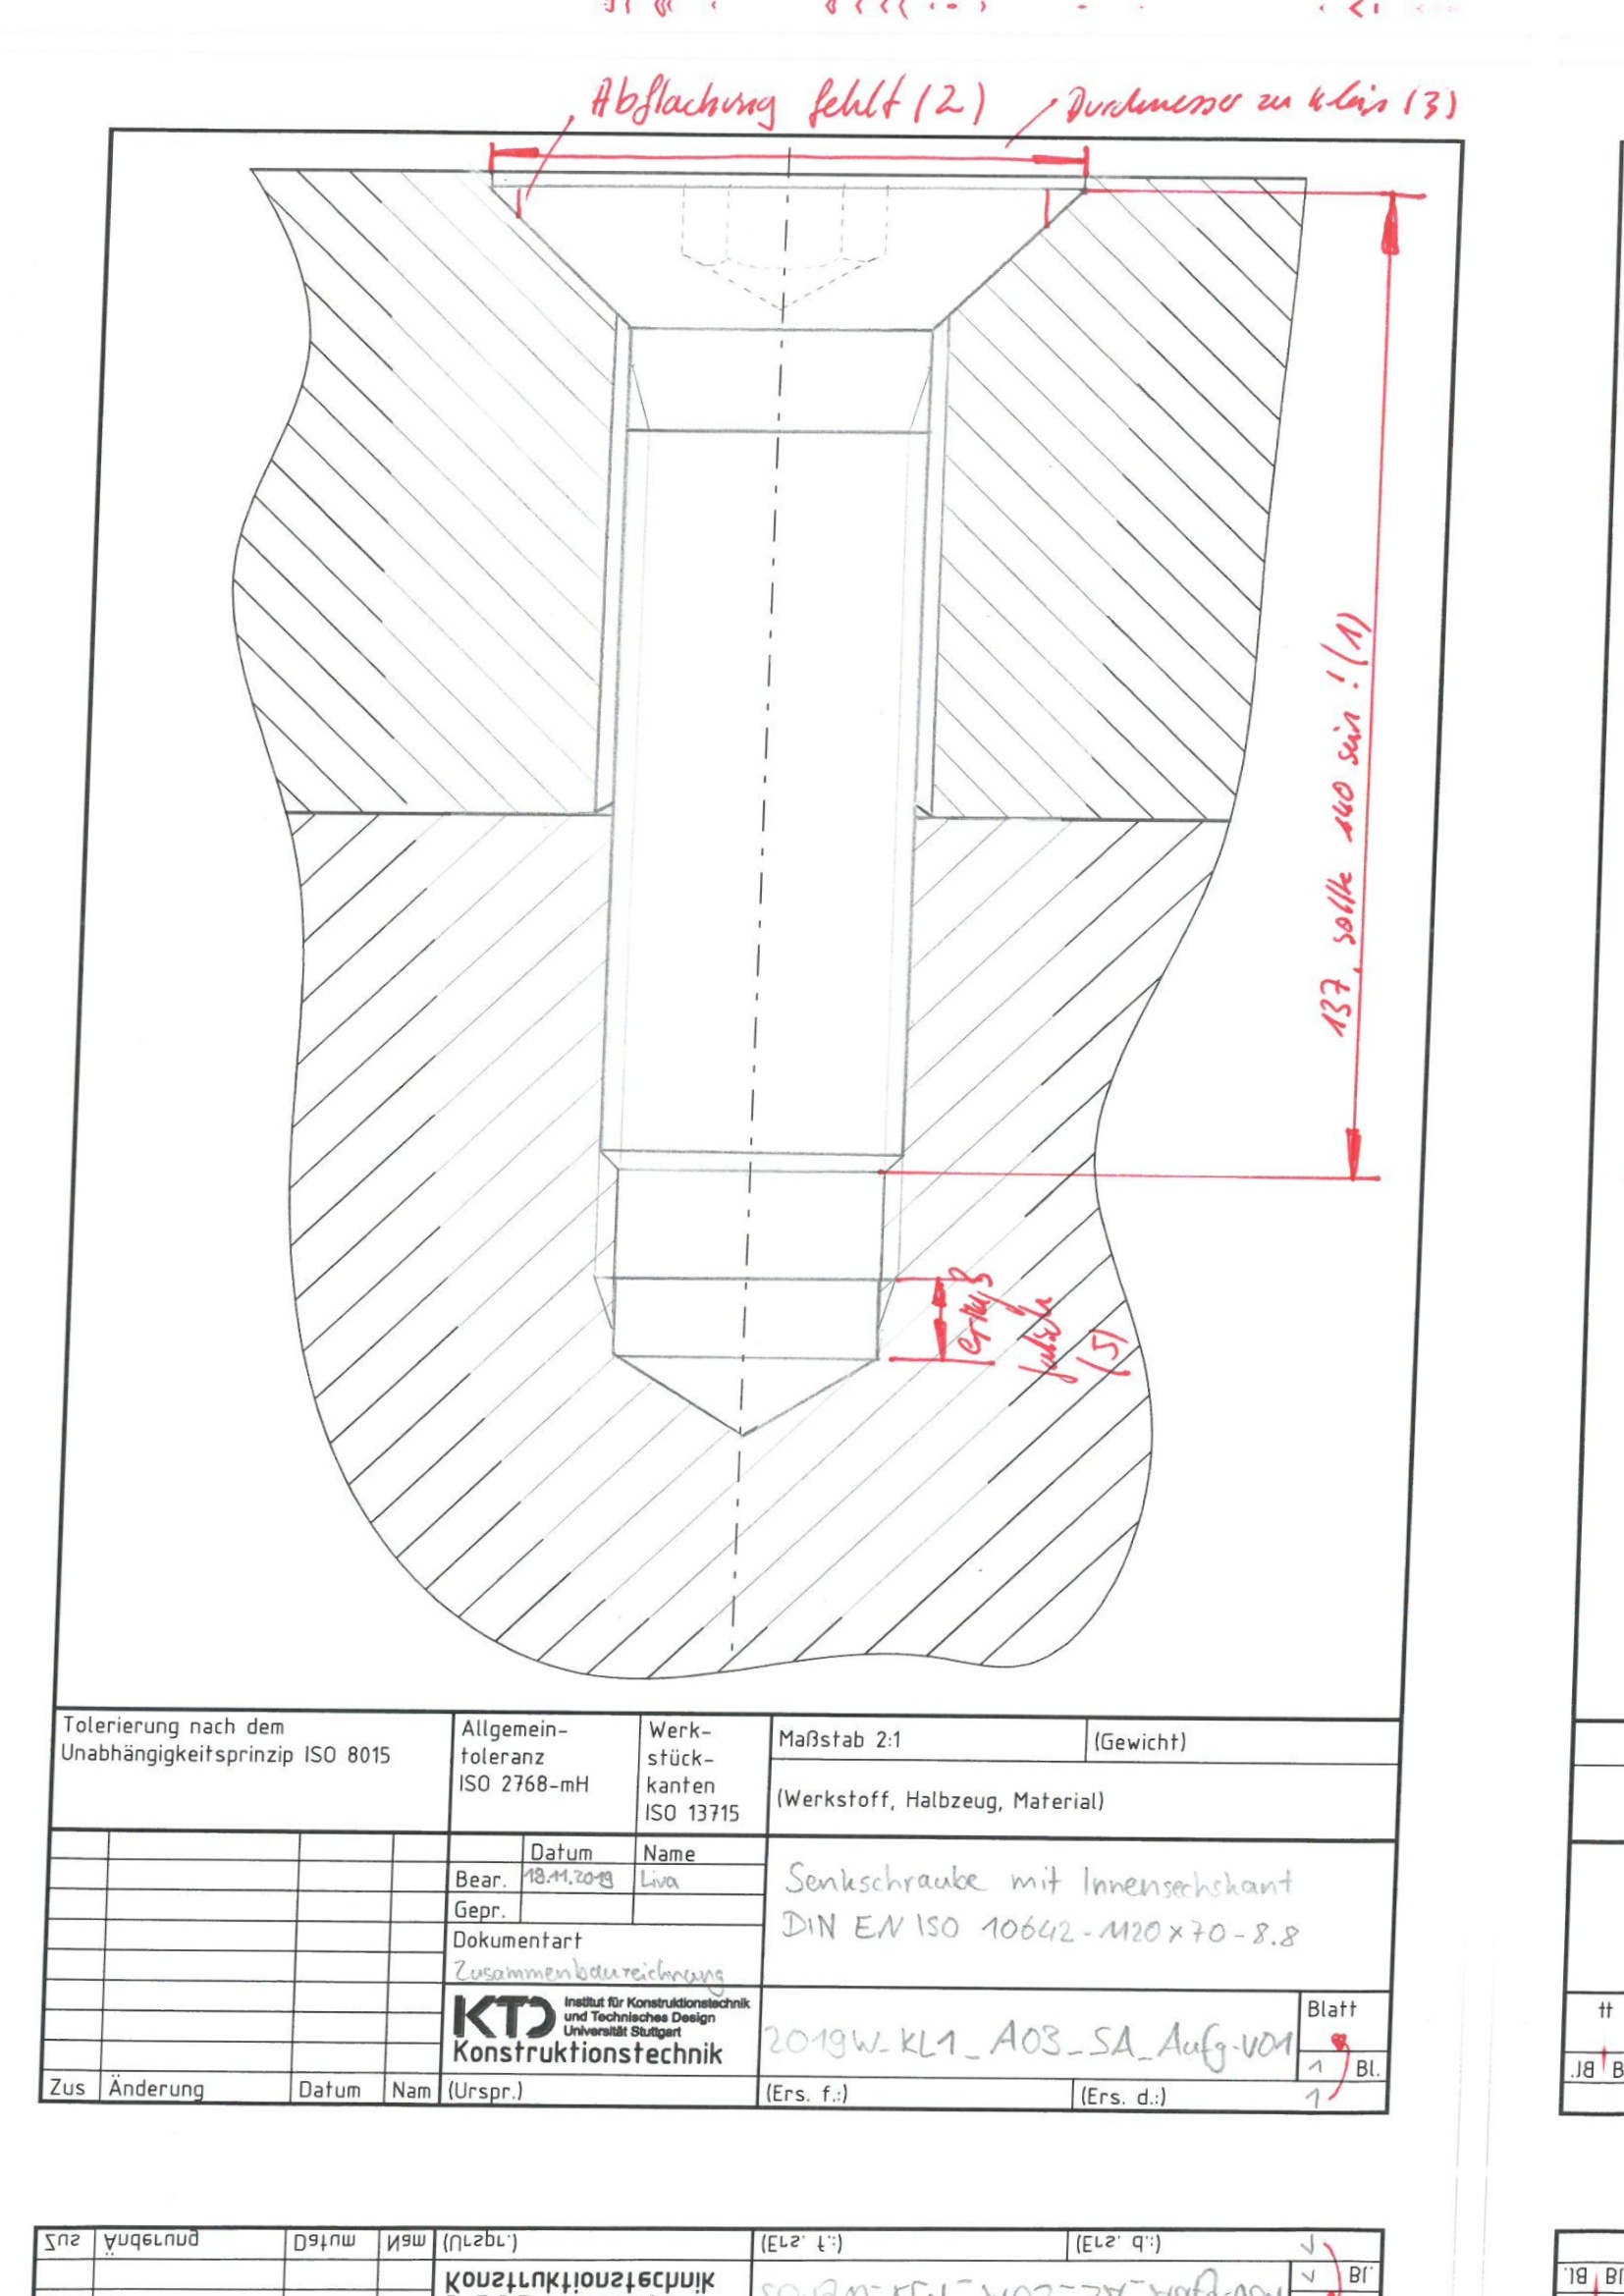 Abflachung fehlt (2)
Durchmesser zu klein (3)
137, sollte 140 sein! (1)
falsch
(5)
Tolerierung nach dem
Unabhängigkeitsprinzip ISO 8015
Allgemein-
toleranz
ISO 2768-mH
Werk-
stück-
kanten
ISO 13715
Maßstab 2:1
(Gewicht)
(Werkstoff, Halbzeug, Material)
Datum Name
Bear. 18.11.2019 Liva
Gepr.
Dokumentart
Zusammenbauzeichnung
Senkschraube mit Innensechskant
DIN EN ISO 10642-M20x70-8.8
KTD Institut für Konstruktionstechnik
und Technisches Design
Universität Stuttgart
Konstruktionstechnik
2019W_KL1_A03_SA_Aufg-V01
Blatt
1 Bl.
1
Zus Änderung Datum Nam (Urspr.) (Ers. f.:) (Ers. d.:)
Zus Änderung Datum Nam (Urspr.) (Ers. f.:) (Ers. d.:) 1
Konstruktionstechnik
1 Bl.